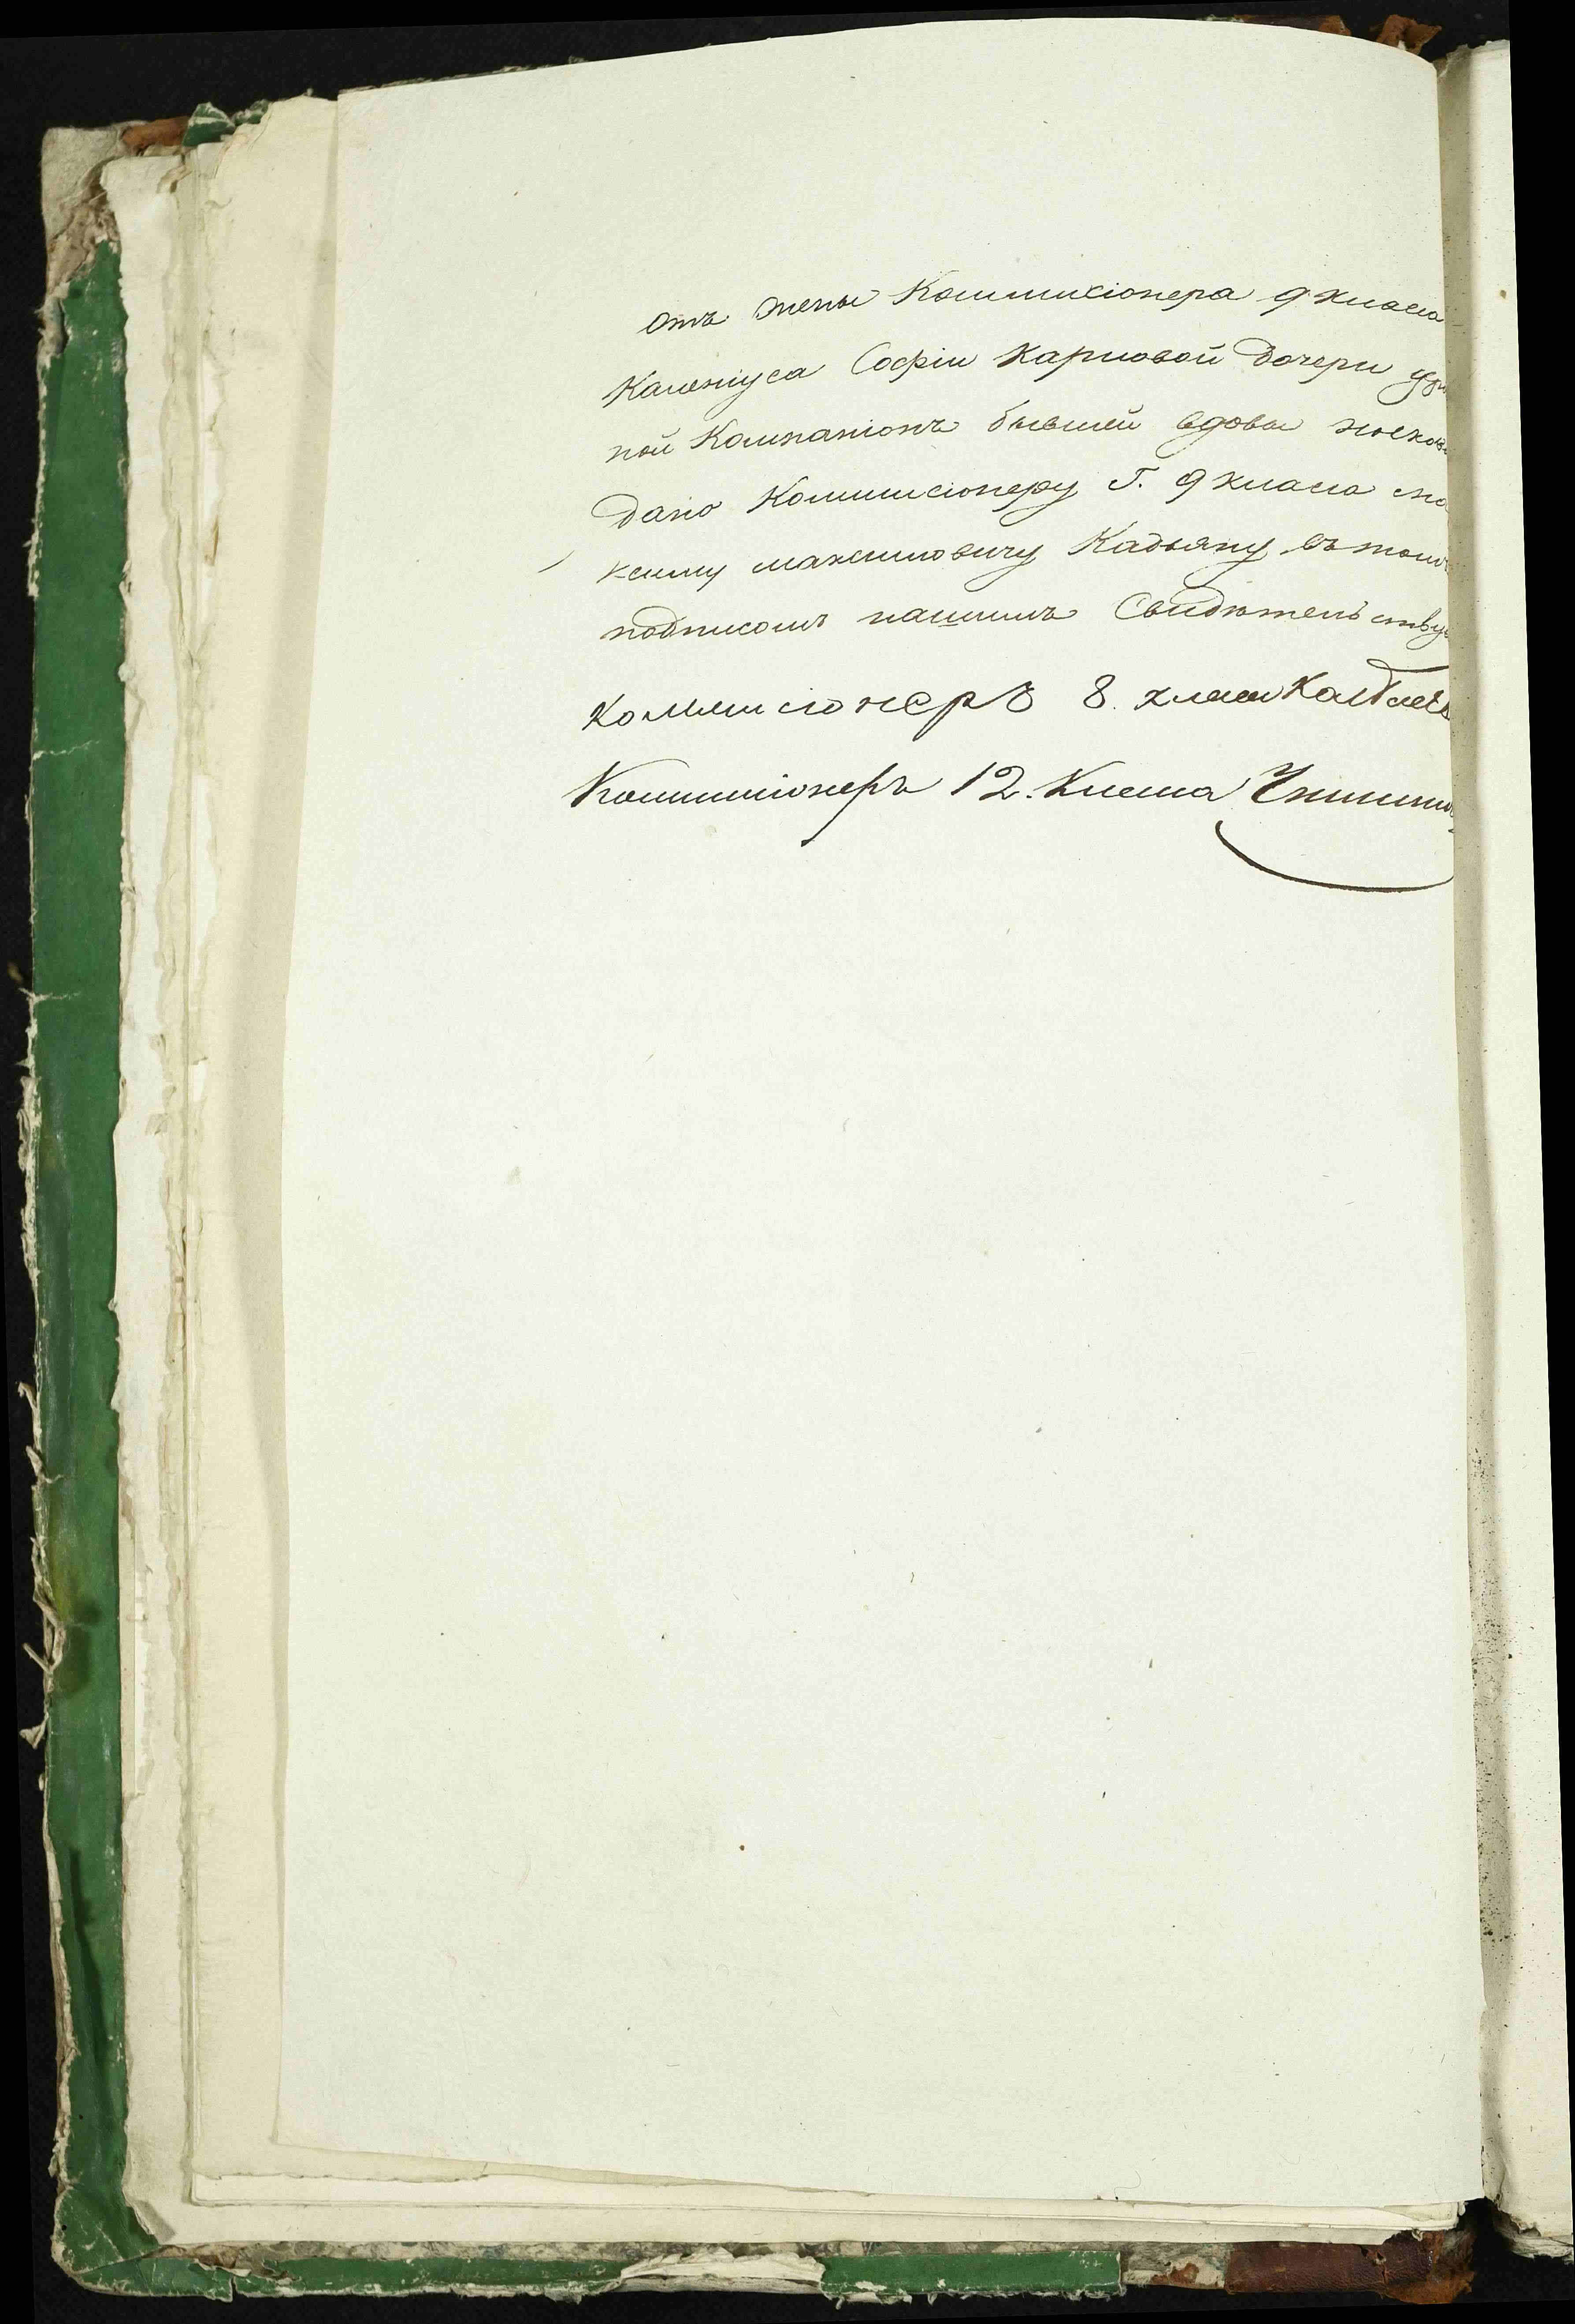 отъ жены Коммисіонера 9 класа
Калежіуса Софіи Карловой дочери
ной Компаніонъ бывшей вдовы
дано Коммисіонеру Г. 9 класа Ма
ксиму Максимовичу Кадьяну въ томъ
подписомъ нашимъ Свидѣтельствуе
Коммисіонеръ 8. класа
Коммисіонеръ 12. Класа